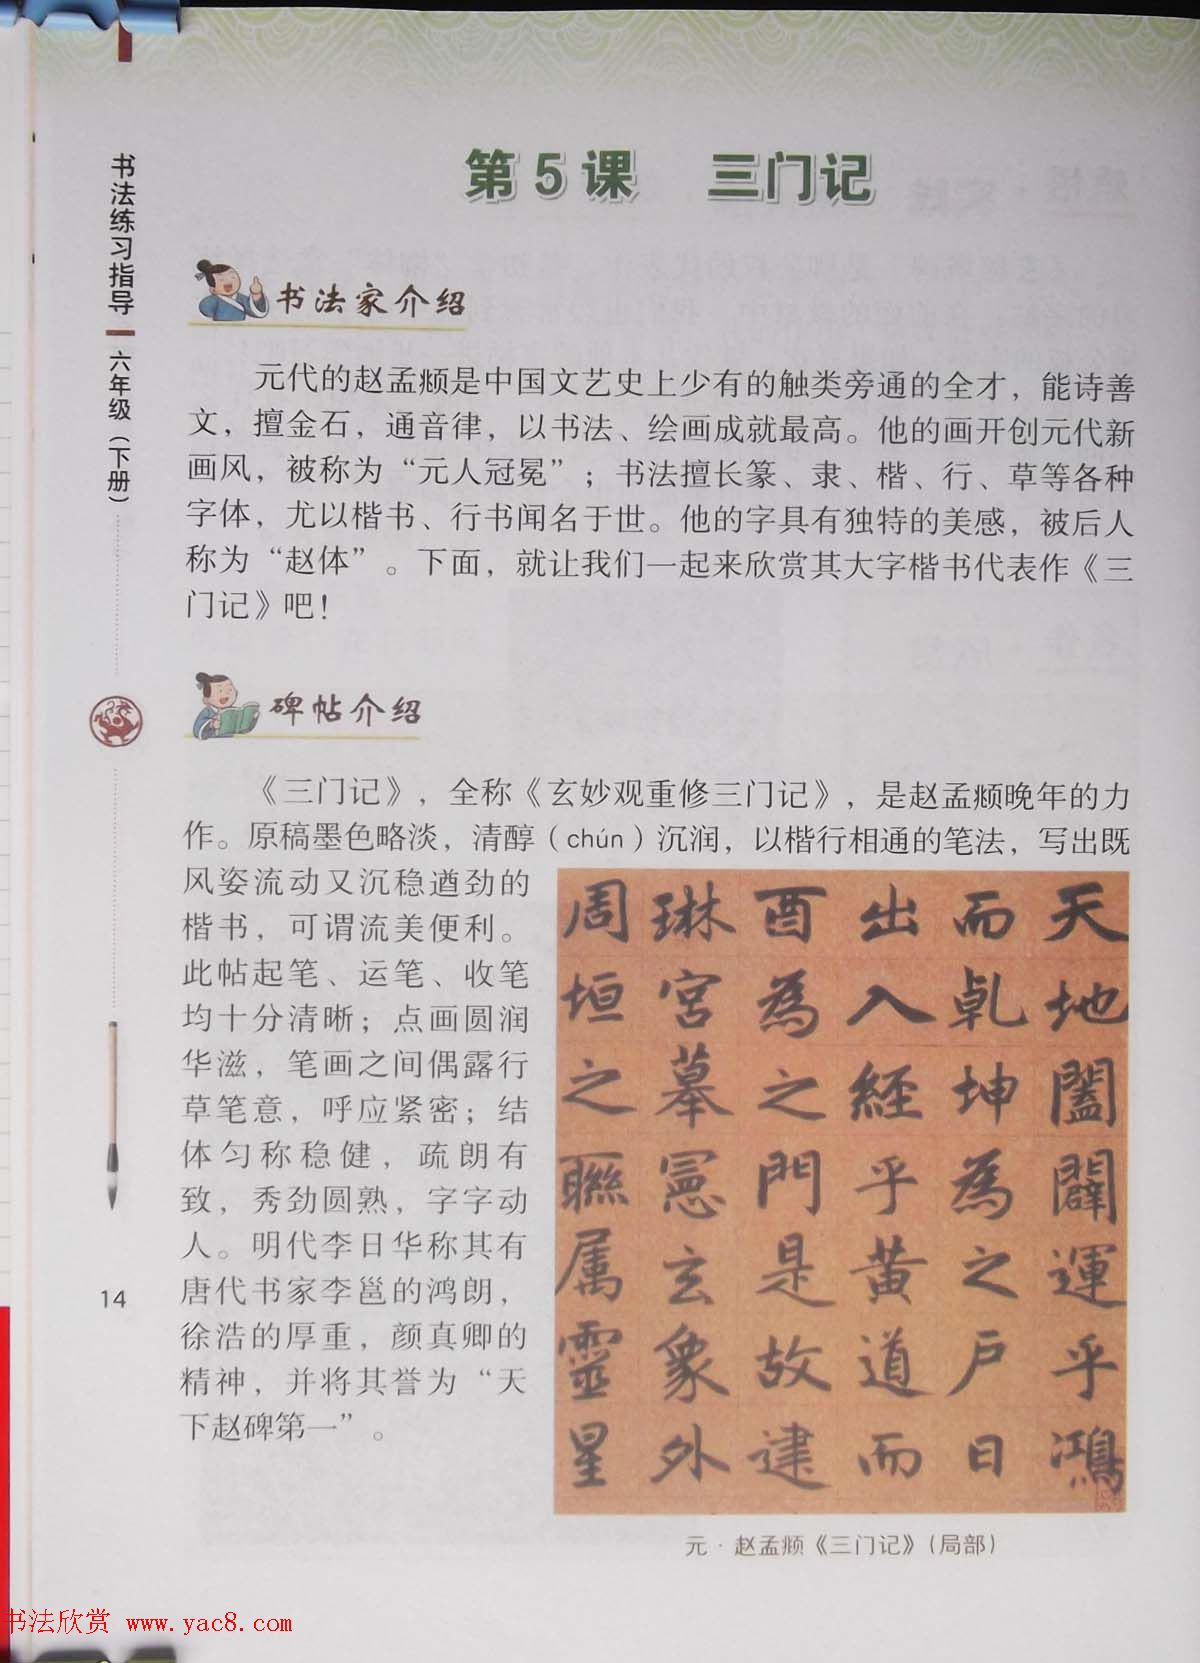 书法练习指导
六年级（下册）
14
第5课 三门记
书法家介绍
元代的赵孟頫是中国文艺史上少有的触类旁通的全才，能诗善
文，擅金石，通音律，以书法、绘画成就最高。他的画开创元代新
画风，被称为“元人冠冕”；书法擅长篆、隶、楷、行、草等各种
字体，尤以楷书、行书闻名于世。他的字具有独特的美感，被后人
称为“赵体”。下面，就让我们一起来欣赏其大字楷书代表作《三
门记》吧！
碑帖介绍
《三门记》，全称《玄妙观重修三门记》，是赵孟頫晚年的力
作。原稿墨色略淡，清醇（chún）沉润，以楷行相通的笔法，写出既
风姿流动又沉稳遒劲的
楷书，可谓流美便利。
此帖起笔、运笔、收笔
均十分清晰；点画圆润
华滋，笔画之间偶露行
草笔意，呼应紧密；结
体匀称稳健，疏朗有
致，秀劲圆熟，字字动
人。明代李日华称其有
唐代书家李邕的鸿朗，
徐浩的厚重，颜真卿的
精神，并将其誉为“天
下赵碑第一”。
天地闔闢運乎鴻
而乹坤為之户日
出入經乎黄道而
酉為之門是故建
琳宮摹憲玄象外
周垣之聯属靈星
元·赵孟頫《三门记》（局部）
书法欣赏 www.yac8.com